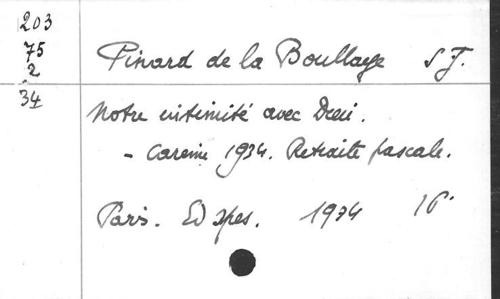 203
75
2
34
Pinard de la Boullaye S.J.
Notre intimité avec Dieu.
- Careme 1934. Retraite pascale.
Paris. Ed Spes. 1934 16°